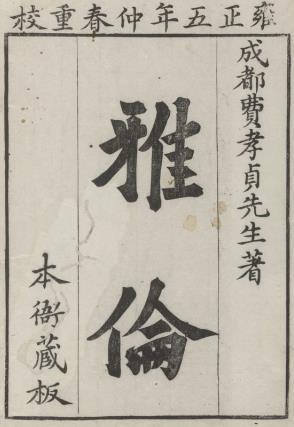 雍正五年仲春重校
成都費孝貞先生著
雅倫
本衙蔵板